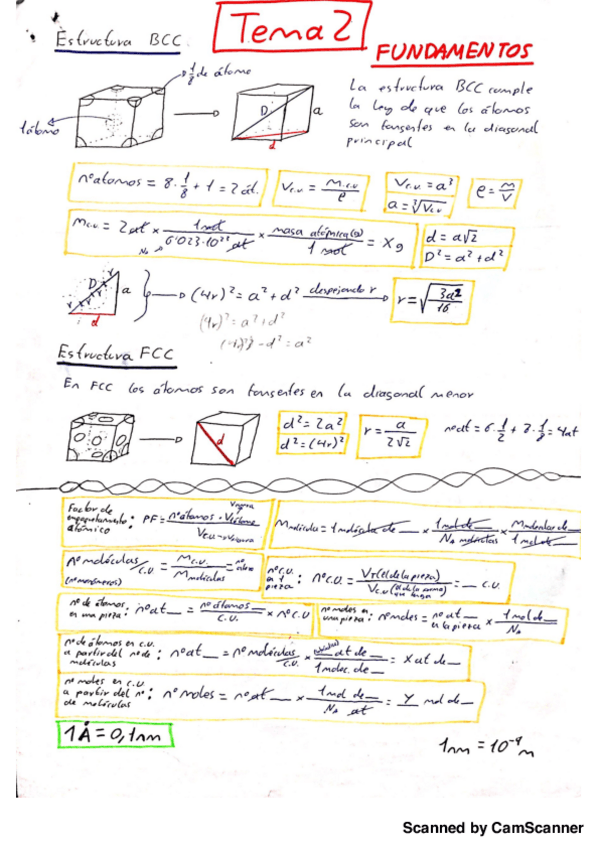 Tema 2
Estructura BCC
FUNDAMENTOS
1/8 de átomo
1 átomo
D
a
d
La estructura BCC cumple
la ley de que los átomos
son tangentes en la diagonal
principal
nºatomos = 8·1/8 + 1 = 2 át.
Vc.u = Mc.u/e
Vc.u = a³
a = ∛Vc.u
e = m/V
Mc.u = 2 at × 1 mol/6'023·10²³ at × masa atómica(g)/1 mol = X g
NA
d = a√2
D² = a² + d²
D
a
d
(4r)² = a² + d² despejando r r = √(3a²/16)
(4r)² = a² + d²
- d² = a²
Estructura FCC
En FCC los átomos son tangentes en la diagonal menor
d
d² = 2a²
d² = (4r)²
r = a/2√2
nºat = 6·1/2 + 8·1/8 = 4at
Factor de
empaquetamiento
atómico
: PF = nºátomos · Vátomo/Vcu
Mmolécula = 1 molécula de __ × 1 mol de __/NA moléculas × Mmolecular de __/1 mol de __
nº moléculas/C.U = Mc.u/Mmoléculas
(nºmonómeros)
nºC.U
en 1
pieza
: nºc.u = VT(el de la pieza)/Vc.u = __ c.u.
nº de átomos
en una pieza
: nºat __ = nºátomos/C.U × nºC.U
nº moles en
una pieza
: nºmoles = nºat __ en la pieza × 1 mol de __/NA
nº de átomos en c.u.
a partir del nº de
moléculas
: nºat __ = nº moléculas/C.U × at de __/1 molec. de __ = X at de __
nº moles en c.u
a partir del nº
de moléculas
: nº moles = nºat __ × 1 mol de __/NA at = Y mol de __
1Å = 0,1nm
1nm = 10⁻⁹ m
Scanned by CamScanner